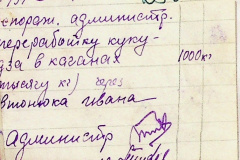 спораж. администр.
переработку куку-
дза в каганах 1000кг
тысячу кг) через
втонюка ивана
администр